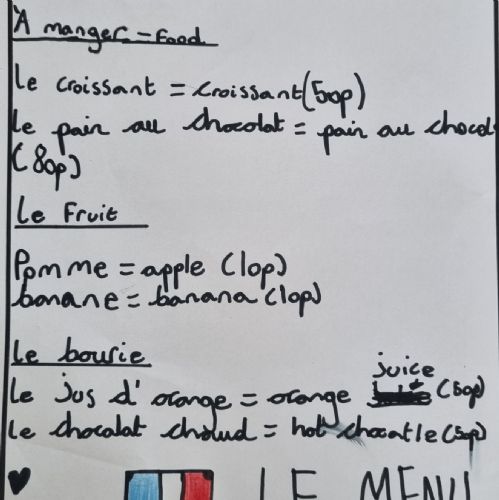 À manger - Food
le croissant = croissant (50p)
le pain au chocolat = pain au chocol
(80p)
Le Fruit
Pomme = apple (10p)
banane = banana (10p)
Le bourie
juice
Le jus d'orange = orange (50p)
Le chocolat choud = hot chocatle (50p)
LE MENU